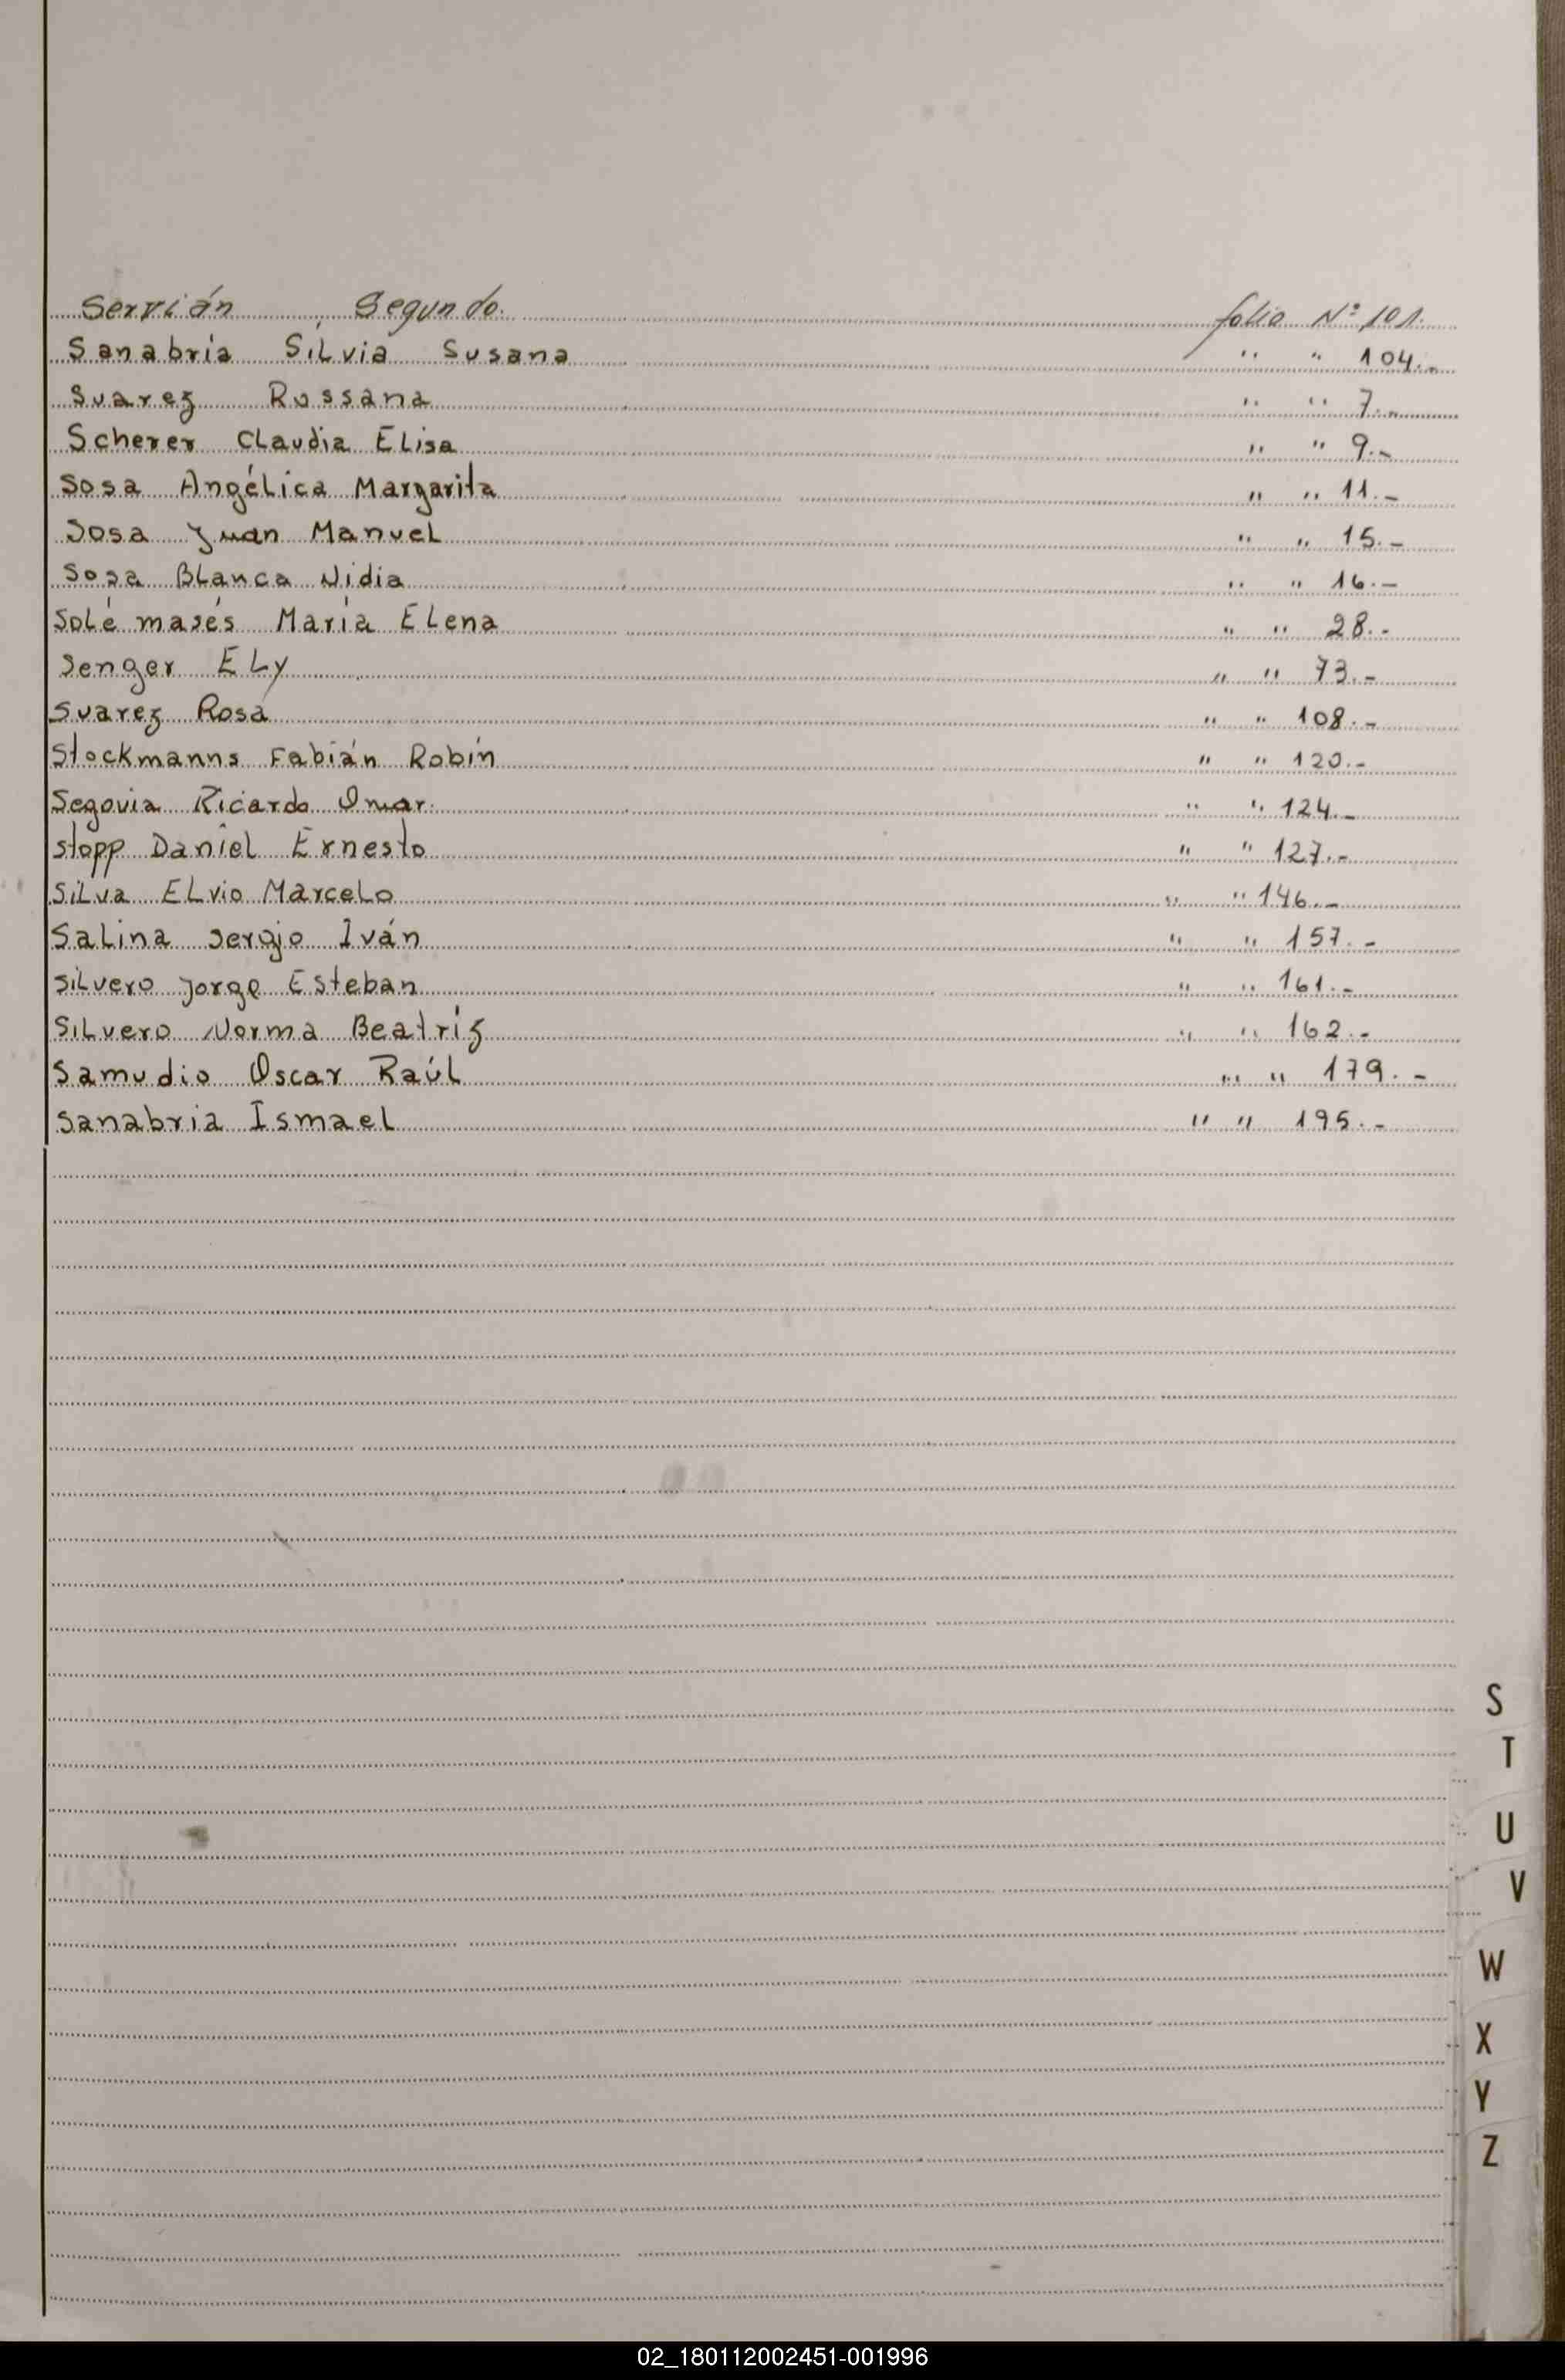 Servián Segundo. folio Nº 101.
Sanabria Silvia Susana " " 104.-
Suarez Rossana " " 7.-
Scherer Claudia Elisa " " 9.-
Sosa Angélica Margarita " " 11.-
Sosa Juan Manuel " " 15.-
Sosa Blanca Nidia " " 16.-
Solé masés María Elena " " 28.-
Senger Ely " " 73.-
Suarez Rosa " " 108.-
Stockmanns Fabián Robín " " 120.-
Segovia Ricardo Omar. " " 124.-
Stopp Daniel Ernesto " " 127.-
Silva Elvio Marcelo " " 146.-
Salina Sergio Iván " " 157.-
Silvero Jorge Esteban " " 161.-
Silvero Norma Beatríz " " 162.-
Samudio Oscar Raúl " " 179.-
Sanabria Ismael " " 195.-
S
T
U
V
W
X
Y
Z
02_180112002451-001996